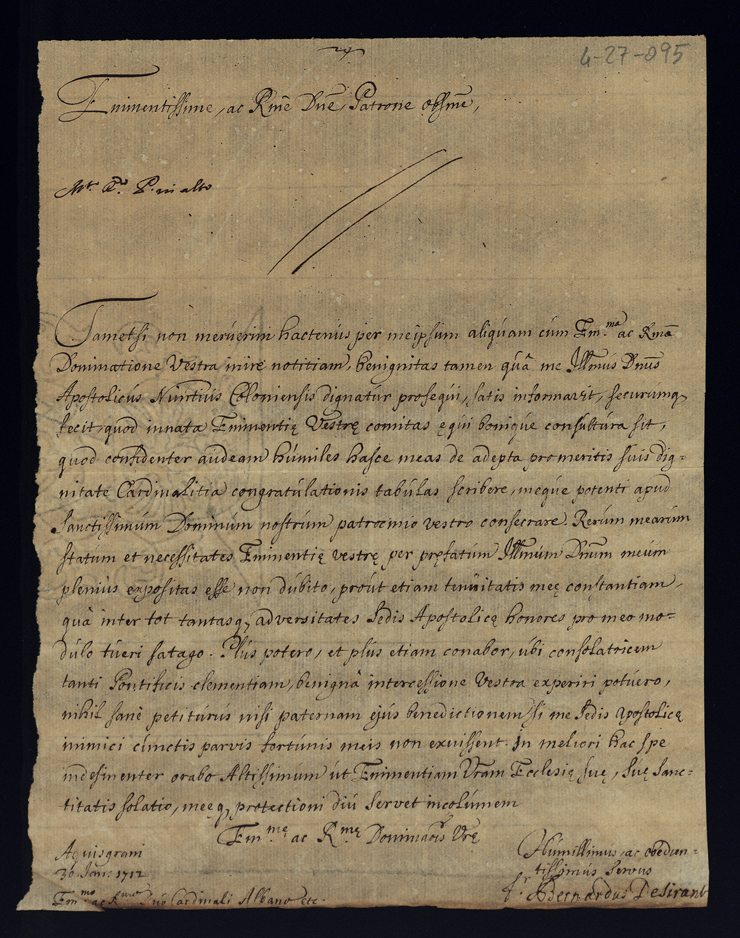 4-27-095
Eminentissime, ac Rme Dne, Patrone obsme,
in alto
Tametsi non meruerim hactenus per meipsum aliquam cum Em.ma ac Rma
Dominatione Vestra inire notitiam, benignitas tamen quâ me Illmus Dnus
Apostolicus Nuntius Coloniensis dignatur prosequi, satis informavit, securumq
fecit, quod innata Eminentię Vestrę comitas ęqui bonique consultura sit,
quod confidenter audeam humiles hasce meas de adepta pro meritis suis dig=
nitate Cardinalitia congratulationis tabulas scribere, meque potenti apud
Sanctissimum Dominum nostrum patrocinio vestro consecrare. Rerum mearum
statum et necessitates Eminentię vestrę per pręfatum Illmum Dnum meum
plenius expositas esse non dubito, proùt etiam tenuitatis meę constantiam,
quâ inter tot tantasq, adversitates Sedis Apostolicę honores pro meo mo=
dulo tueri satago. Plus potero, et plus etiam conabor, ubi consolatricem
tanti Pontificis clementiam, benignâ intercessione Vestra experiri potuero,
nihil sanè petiturus nisi paternam ejus benedictionem, si me Sedis Apostolicę
inimici cunctis parvis fortunis meis non exuissent. In meliori hac spe
indesinenter orabo Altissimum ut Eminentiam Vram Ecclesię suę, Suę Sanc=
titatis solatio, meęq, protectioni diu servet incolumem
Em.mę ac R.mę Dominaois Vrę
Aquisgrani
30 Jan: 1712
Humillimus, ac obedien=
tissimus servus
f. Bernardus Desirant
Em.mo ac Rmo Dno Cardinali Albano etc.